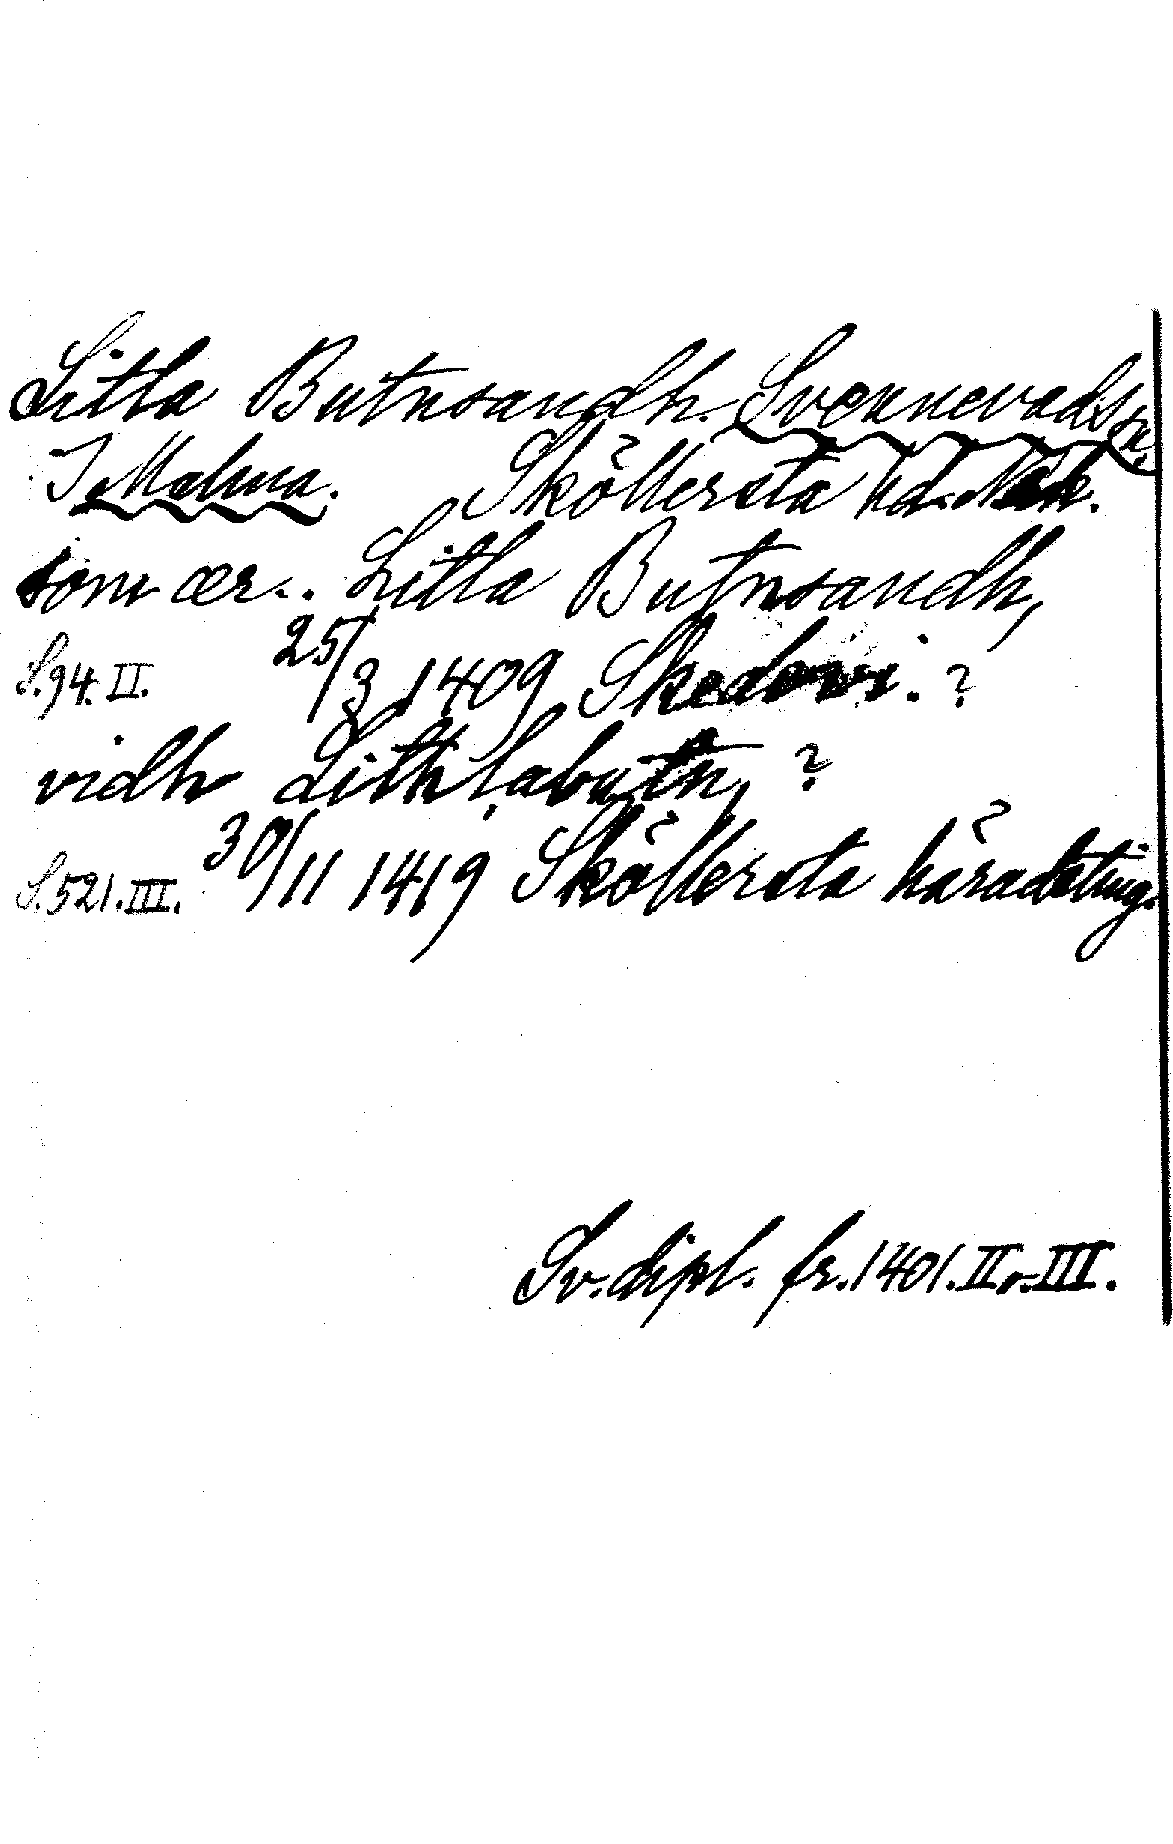 Litla Butnsandh. Svennevads sn.
I Malma. Sköllersta hd. Närk.
som ær.. Litla Butnsandh,
S.94.II. 25/3 1409 Skedowi. ?
vidh Lithlabutn, ?
S.521.III. 30/11 1419 Sköllersta häradsting.
Sv. dipl. fr. 1401. II o. III.